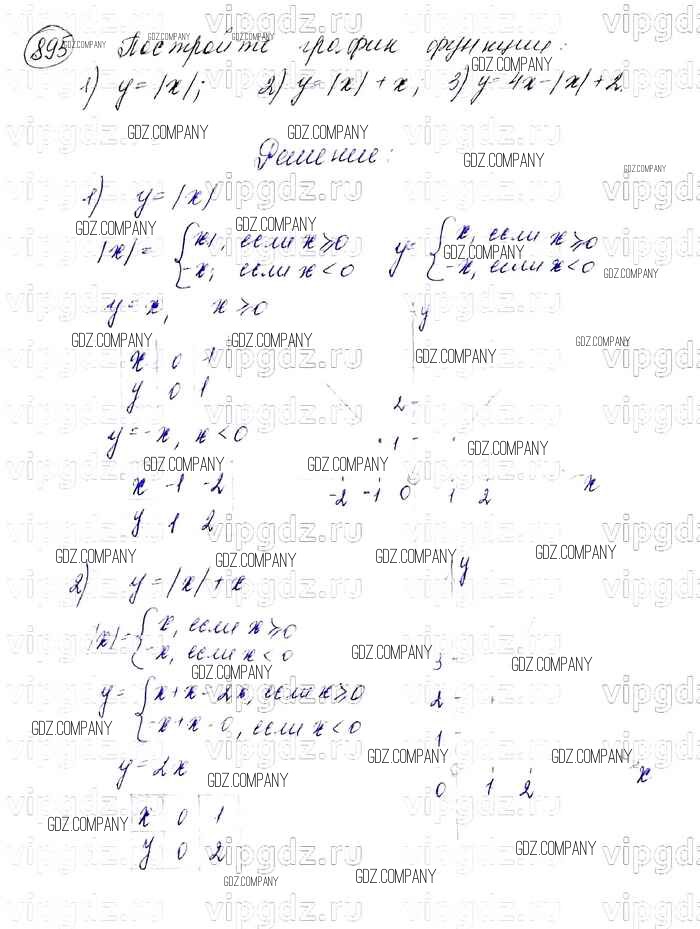 895 Постройте график функции:
1) y=|x|; 2) y=|x|+x; 3) y=4x-|x|+2.
Решение:
1) y=|x|
|x|= { x, если x⩾0
-x, если x<0
y= { x, если x⩾0
-x, если x<0
y=x, x⩾0
x 0 1
y 0 1
y=-x, x<0
x -1 -2
y 1 2
y
2
1
-2 -1 0 1 2 x
2) y=|x|+x
|x|= { x, если x⩾0
-x, если x<0
y= { x+x=2x, если x⩾0
-x+x=0, если x<0
y=2x
x 0 1
y 0 2
y
3
2
1
0 1 2 x
GDZ.COMPANY
vipgdz.ru